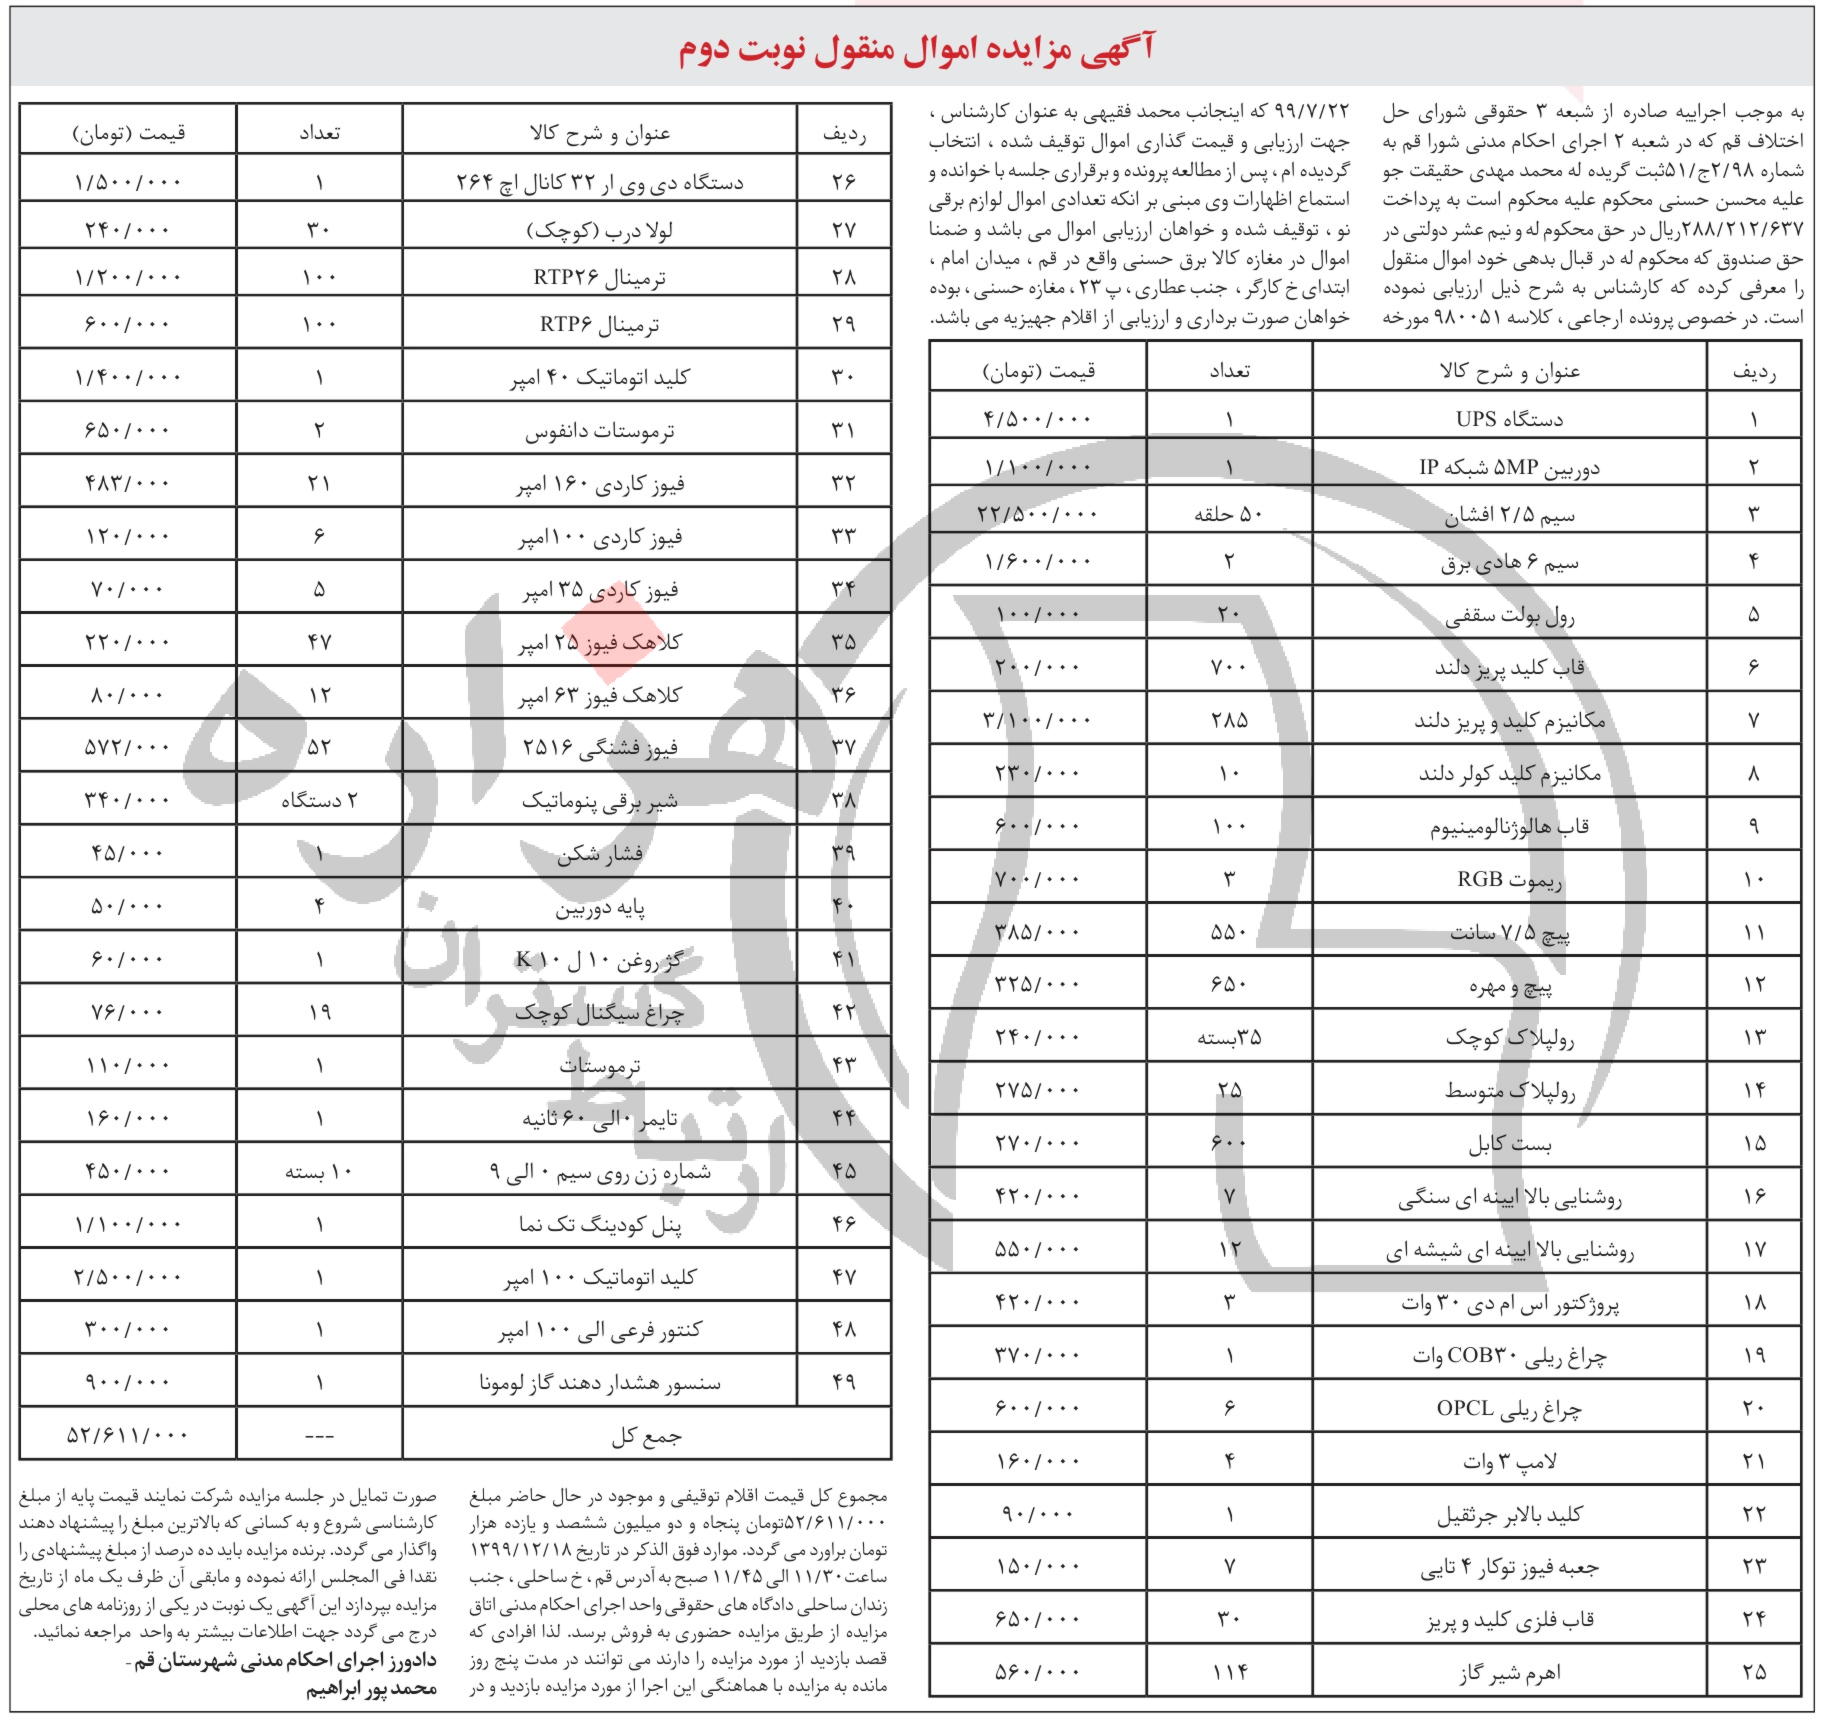 آگهی مزایده اموال منقول نوبت دوم
به موجب اجراییه صادره از شعبه ۳ حقوقی شورای حل
اختلاف قم که در شعبه ۲ اجرای احکام مدنی شورا قم به
شماره ۲/۹۸ج/۵۱ثبت گریده له محمد مهدی حقیقت جو
علیه محسن حسنی محکوم علیه محکوم است به پرداخت
۲۸۸/۲۱۲/۶۳۷ریال در حق محکوم له و نیم عشر دولتی در
حق صندوق که محکوم له در قبال بدهی خود اموال منقول
را معرفی کرده که کارشناس به شرح ذیل ارزیابی نموده
است. در خصوص پرونده ارجاعی ، کلاسه ۹۸۰۰۵۱ مورخه
۹۹/۷/۲۲ که اینجانب محمد فقیهی به عنوان کارشناس ،
جهت ارزیابی و قیمت گذاری اموال توقیف شده ، انتخاب
گردیده ام ، پس از مطالعه پرونده و برقراری جلسه با خوانده و
استماع اظهارات وی مبنی بر انکه تعدادی اموال لوازم برقی
نو ، توقیف شده و خواهان ارزیابی اموال می باشد و ضمنا
اموال در مغازه کالا برق حسنی واقع در قم ، میدان امام ،
ابتدای خ کارگر ، جنب عطاری ، پ ۲۳ ، مغازه حسنی ، بوده
خواهان صورت برداری و ارزیابی از اقلام جهیزیه می باشد.
ردیف عنوان و شرح کالا تعداد قیمت (تومان)
۱ دستگاه UPS ۱ ۴/۵۰۰/۰۰۰
۲ دوربین ۵MP شبکه IP ۱ ۱/۱۰۰/۰۰۰
۳ سیم ۲/۵ افشان ۵۰ حلقه ۲۲/۵۰۰/۰۰۰
۴ سیم ۶ هادی برق ۲ ۱/۶۰۰/۰۰۰
۵ رول بولت سقفی ۲۰ ۱۰۰/۰۰۰
۶ قاب کلید پریز دلند ۷۰۰ ۲۰۰/۰۰۰
۷ مکانیزم کلید و پریز دلند ۲۸۵ ۳/۱۰۰/۰۰۰
۸ مکانیزم کلید کولر دلند ۱۰ ۲۳۰/۰۰۰
۹ قاب هالوژنالومینیوم ۱۰۰ ۶۰۰/۰۰۰
۱۰ ریموت RGB ۳ ۷۰۰/۰۰۰
۱۱ پیچ ۷/۵ سانت ۵۵۰ ۳۸۵/۰۰۰
۱۲ پیچ و مهره ۶۵۰ ۳۲۵/۰۰۰
۱۳ رولپلاک کوچک ۳۵بسته ۲۴۰/۰۰۰
۱۴ رولپلاک متوسط ۲۵ ۲۷۵/۰۰۰
۱۵ بست کابل ۶۰۰ ۲۷۰/۰۰۰
۱۶ روشنایی بالا ایینه ای سنگی ۷ ۴۲۰/۰۰۰
۱۷ روشنایی بالا ایینه ای شیشه ای ۱۲ ۵۵۰/۰۰۰
۱۸ پروژکتور اس ام دی ۳۰ وات ۳ ۴۲۰/۰۰۰
۱۹ چراغ ریلی COB۳۰ وات ۱ ۳۷۰/۰۰۰
۲۰ چراغ ریلی OPCL ۶ ۶۰۰/۰۰۰
۲۱ لامپ ۳ وات ۴ ۱۶۰/۰۰۰
۲۲ کلید بالابر جرثقیل ۱ ۹۰/۰۰۰
۲۳ جعبه فیوز توکار ۴ تایی ۷ ۱۵۰/۰۰۰
۲۴ قاب فلزی کلید و پریز ۳۰ ۶۵۰/۰۰۰
۲۵ اهرم شیر گاز ۱۱۴ ۵۶۰/۰۰۰
ردیف عنوان و شرح کالا تعداد قیمت (تومان)
۲۶ دستگاه دی وی ار ۳۲ کانال اچ ۲۶۴ ۱ ۱/۵۰۰/۰۰۰
۲۷ لولا درب (کوچک) ۳۰ ۲۴۰/۰۰۰
۲۸ ترمینال RTP۲۶ ۱۰۰ ۱/۲۰۰/۰۰۰
۲۹ ترمینال RTP۶ ۱۰۰ ۶۰۰/۰۰۰
۳۰ کلید اتوماتیک ۴۰ امپر ۱ ۱/۴۰۰/۰۰۰
۳۱ ترموستات دانفوس ۲ ۶۵۰/۰۰۰
۳۲ فیوز کاردی ۱۶۰ امپر ۲۱ ۴۸۳/۰۰۰
۳۳ فیوز کاردی ۱۰۰امپر ۶ ۱۲۰/۰۰۰
۳۴ فیوز کاردی ۳۵ امپر ۵ ۷۰/۰۰۰
۳۵ کلاهک فیوز ۲۵ امپر ۴۷ ۲۲۰/۰۰۰
۳۶ کلاهک فیوز ۶۳ امپر ۱۲ ۸۰/۰۰۰
۳۷ فیوز فشنگی ۲۵۱۶ ۵۲ ۵۷۲/۰۰۰
۳۸ شیر برقی پنوماتیک ۲ دستگاه ۳۴۰/۰۰۰
۳۹ فشار شکن ۱ ۴۵/۰۰۰
۴۰ پایه دوربین ۴ ۵۰/۰۰۰
۴۱ گژ روغن ۱۰ ل ۱۰ K ۱ ۶۰/۰۰۰
۴۲ چراغ سیگنال کوچک ۱۹ ۷۶/۰۰۰
۴۳ ترموستات ۱ ۱۱۰/۰۰۰
۴۴ تایمر ۰الی ۶۰ ثانیه ۱ ۱۶۰/۰۰۰
۴۵ شماره زن روی سیم ۰ الی ۹ ۱۰ بسته ۴۵۰/۰۰۰
۴۶ پنل کودینگ تک نما ۱ ۱/۱۰۰/۰۰۰
۴۷ کلید اتوماتیک ۱۰۰ امپر ۱ ۲/۵۰۰/۰۰۰
۴۸ کنتور فرعی الی ۱۰۰ امپر ۱ ۳۰۰/۰۰۰
۴۹ سنسور هشدار دهند گاز لومونا ۱ ۹۰۰/۰۰۰
جمع کل --- ۵۲/۶۱۱/۰۰۰
مجموع کل قیمت اقلام توقیفی و موجود در حال حاضر مبلغ
۵۲/۶۱۱/۰۰۰تومان پنجاه و دو میلیون ششصد و یازده هزار
تومان براورد می گردد. موارد فوق الذکر در تاریخ ۱۳۹۹/۱۲/۱۸
ساعت۱۱/۳۰ الی ۱۱/۴۵ صبح به آدرس قم ، خ ساحلی ، جنب
زندان ساحلی دادگاه های حقوقی واحد اجرای احکام مدنی اتاق
مزایده از طریق مزایده حضوری به فروش برسد. لذا افرادی که
قصد بازدید از مورد مزایده را دارند می توانند در مدت پنج روز
مانده به مزایده با هماهنگی این اجرا از مورد مزایده بازدید و در
صورت تمایل در جلسه مزایده شرکت نمایند قیمت پایه از مبلغ
کارشناسی شروع و به کسانی که بالاترین مبلغ را پیشنهاد دهند
واگذار می گردد. برنده مزایده باید ده درصد از مبلغ پیشنهادی را
نقدا فی المجلس ارائه نموده و مابقی آن ظرف یک ماه از تاریخ
مزایده بپردازد این آگهی یک نوبت در یکی از روزنامه های محلی
درج می گردد جهت اطلاعات بیشتر به واحد مراجعه نمائید.
دادورز اجرای احکام مدنی شهرستان قم -
محمد پور ابراهیم
هزاره
گستران
ارتباط